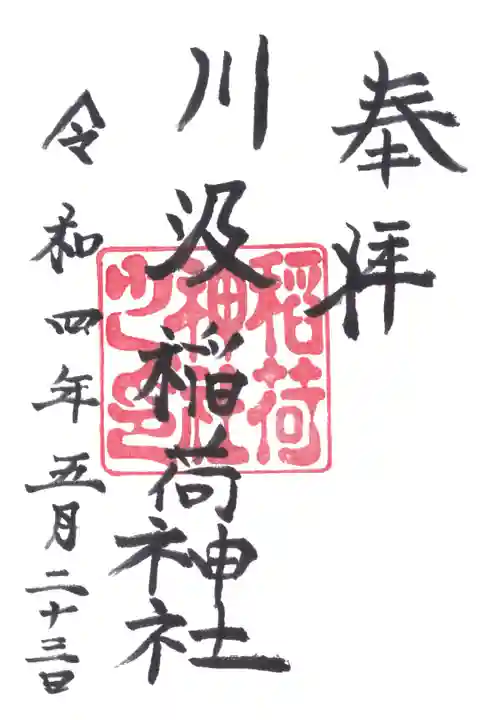 奉拝
川汲稲荷神社
稲荷
神社
之印
令和四年五月二十三日